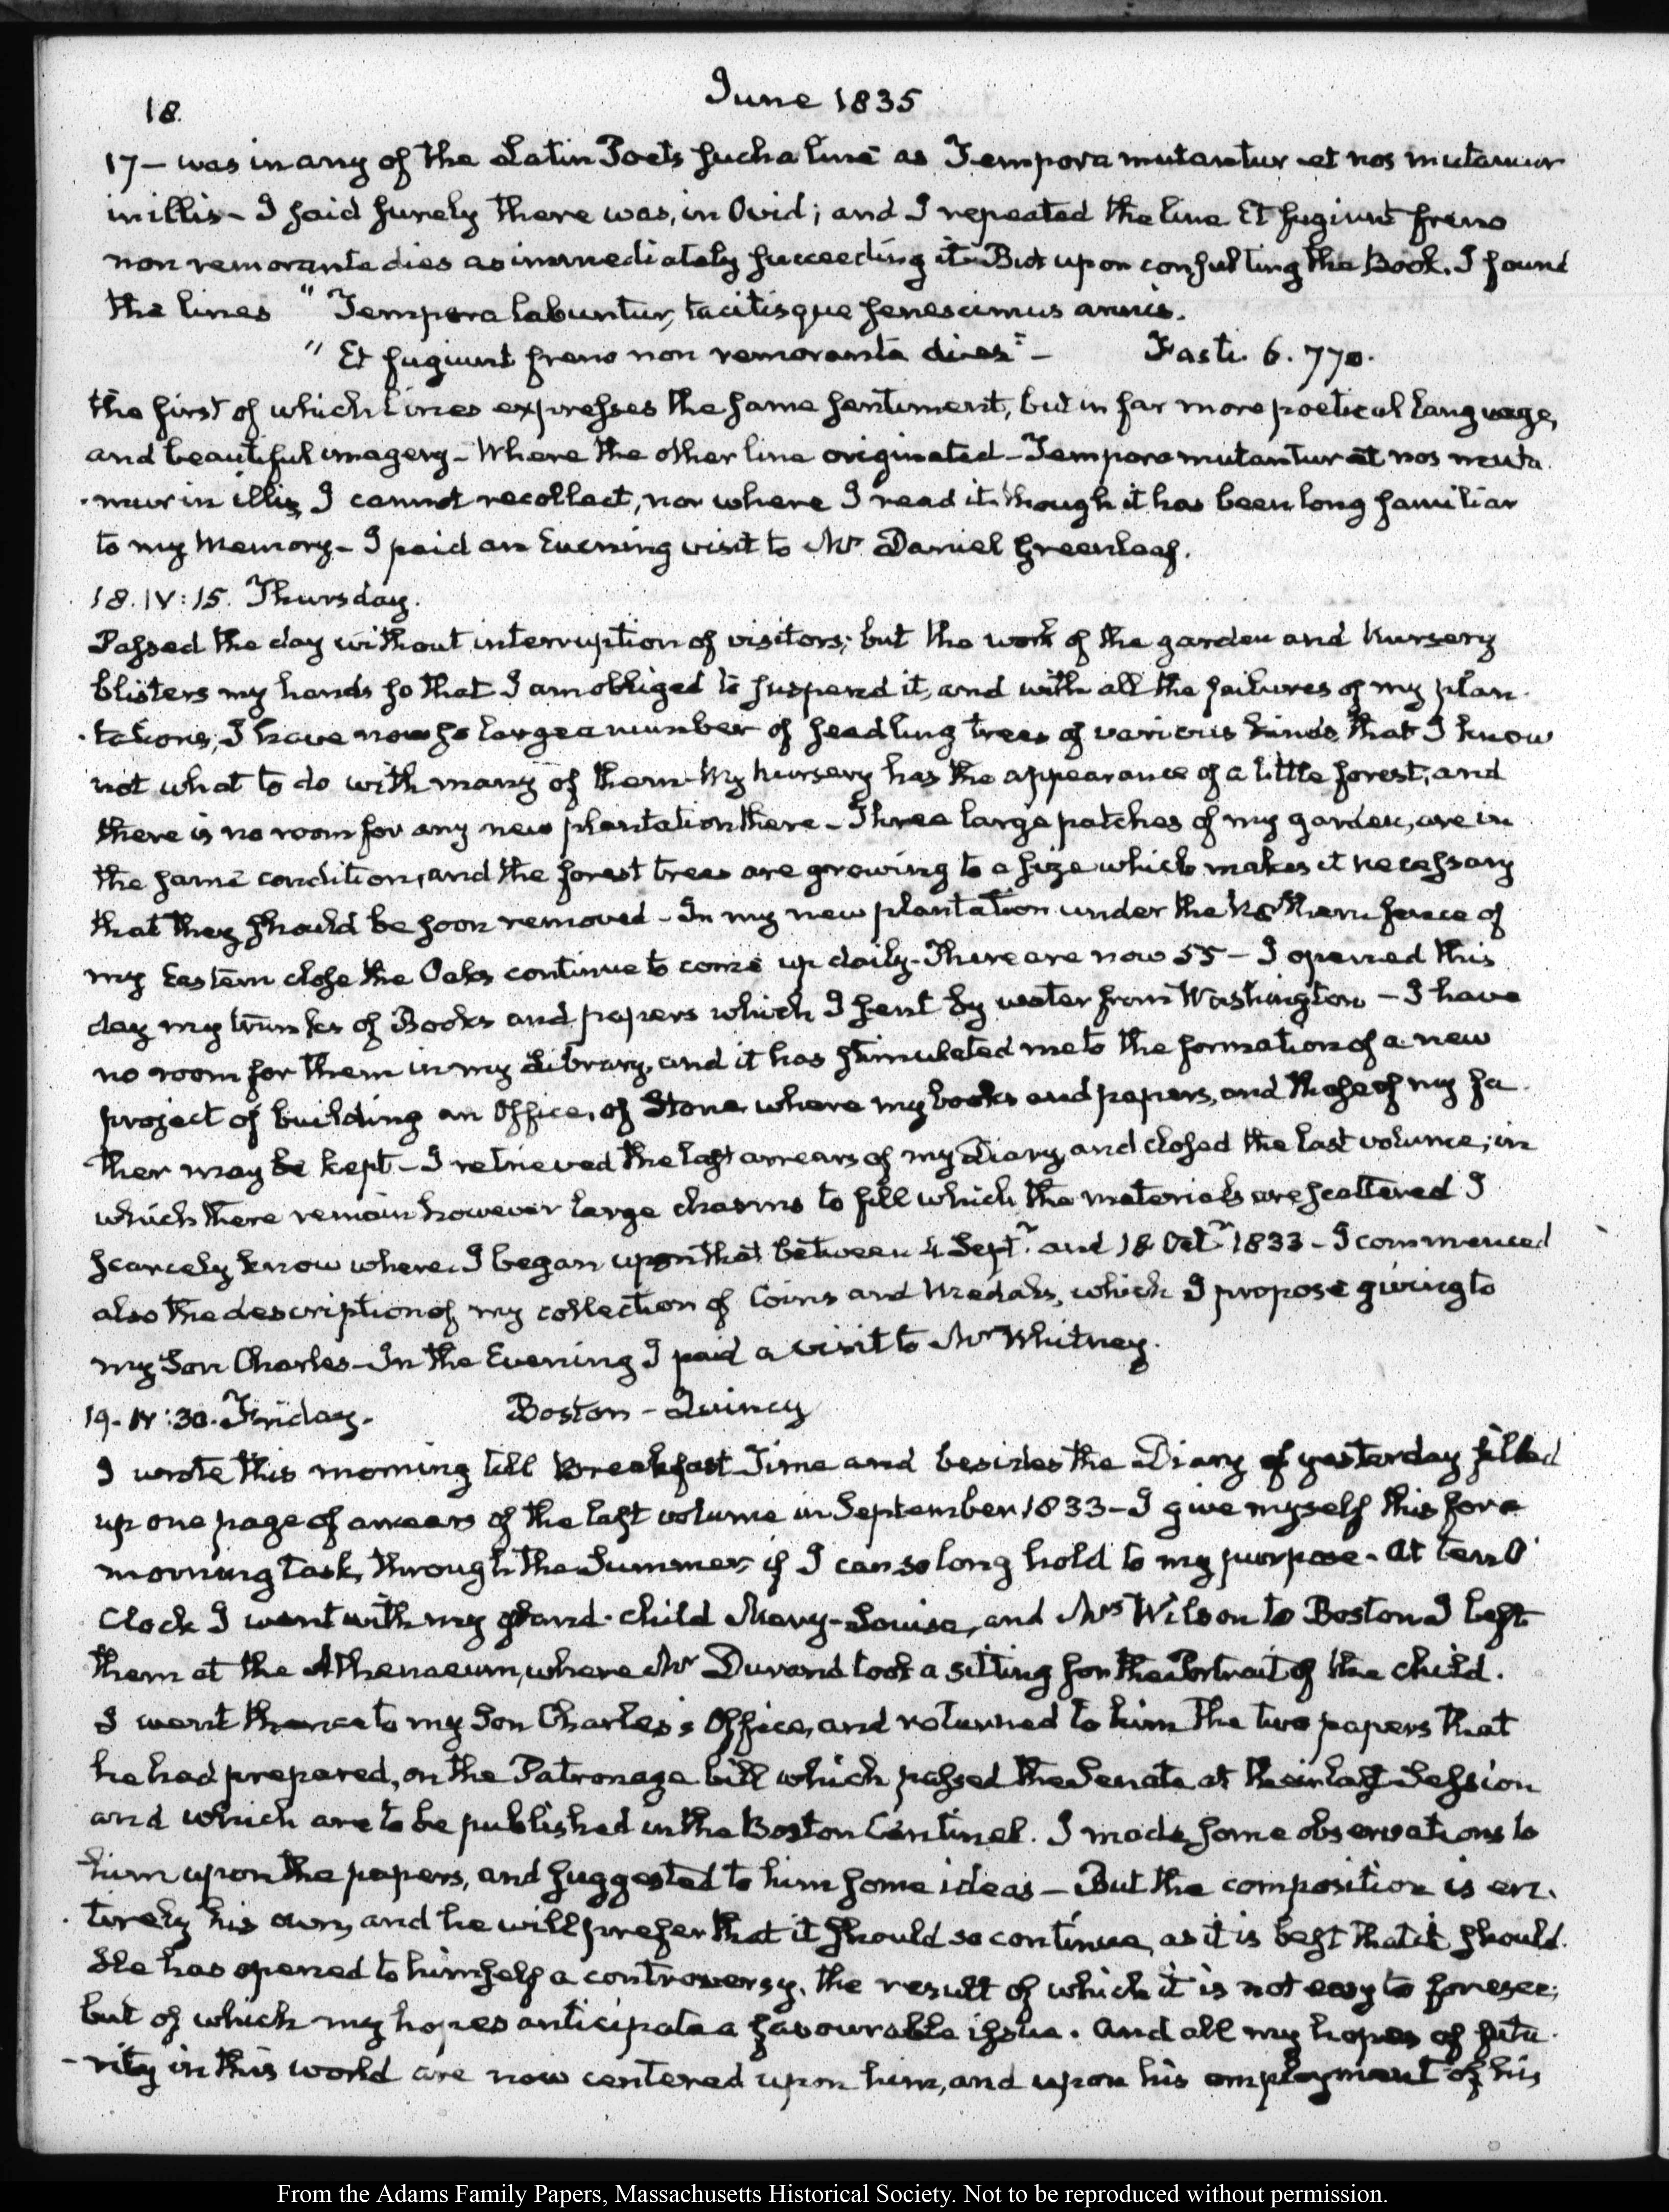 18.
June 1835
17 — was in any of the Latin Poets such a line as Tempora mutantur et nos mutamur
in illis — I said surely there was, in Ovid; and I repeated the line Et fugiunt freno
non remorante dies as immediately succeeding it. But upon consulting the Book, I found
the lines " Tempora labuntur, tacitisque senescimus annis.
" Et fugiunt freno non remorante dies" — Fasti. 6. 770.
the first of which lines expresses the same sentiment, but in far more poetical language,
and beautiful imagery — Where the other line originated — Tempora mutantur et nos muta
-mur in illis, I cannot recollect, nor where I read it though it has been long familiar
to my Memory — I paid an Evening visit to Mr Daniel Greenleaf.
18. IV:15. Thursday.
Passed the day without interruption of visitors; but the work of the garden and Nursery
blisters my hands so that I am obliged to suspend it, and with all the failures of my plan-
-tations, I have now so large a number of seedling trees of various kinds, that I know
not what to do with many of them. My nursery has the appearance of a little forest, and
there is no room for any new plantation there — Three large patches of my garden, are in
the same condition, and the forest trees are growing to a size which makes it necessary
that they should be soon removed — In my new plantation under the Northern fence of
my Eastern close the Oaks continue to come up daily. There are now 55 — I opened this
day my trunks of Books and papers which I sent by water from Washington — I have
no room for them in my Library, and it has stimulated me to the formation of a new
project of building an Office, of Stone where my books and papers, and those of my fa-
ther may be kept — I retrieved the last arrears of my Diary, and closed the last volume; in
which there remain however large chasms to fill which the materials are scattered I
scarcely know where. I began upon that between 4 Septr. and 18 Octr 1833 — I commenced
also the description of my collection of Coins and Medals, which I propose giving to
my Son Charles — In the Evening I paid a visit to Mr Whitney.
19. IV:30. Friday. Boston — Quincy
I wrote this morning till Breakfast Time and besides the Diary of yesterday filled
up one page of arrears of the last volume in September 1833 — I give myself this fore
morning task, through the Summer, if I can so long hold to my purpose. At ten O'
Clock I went with my grand-child Mary-Louisa, and Mrs Wilson to Boston I left
them at the Athenaeum, where Mr Durand took a sitting for the Portrait of the child.
I went thence to my Son Charles's Office, and returned to him the two papers that
he had prepared, on the Patronage bill which passed the Senate at their last Session
and which are to be published in the Boston Centinel. I made some observations to
him upon the papers, and suggested to him some ideas — But the composition is en-
-tirely his own, and he will prefer that it should so continue, as it is best that it should.
He has opened to himself a controversy, the result of which it is not easy to foresee;
but of which my hopes anticipate a favourable issue. And all my hopes of futu-
-rity in this world are now centered upon him, and upon his employment of his
From the Adams Family Papers, Massachusetts Historical Society. Not to be reproduced without permission.